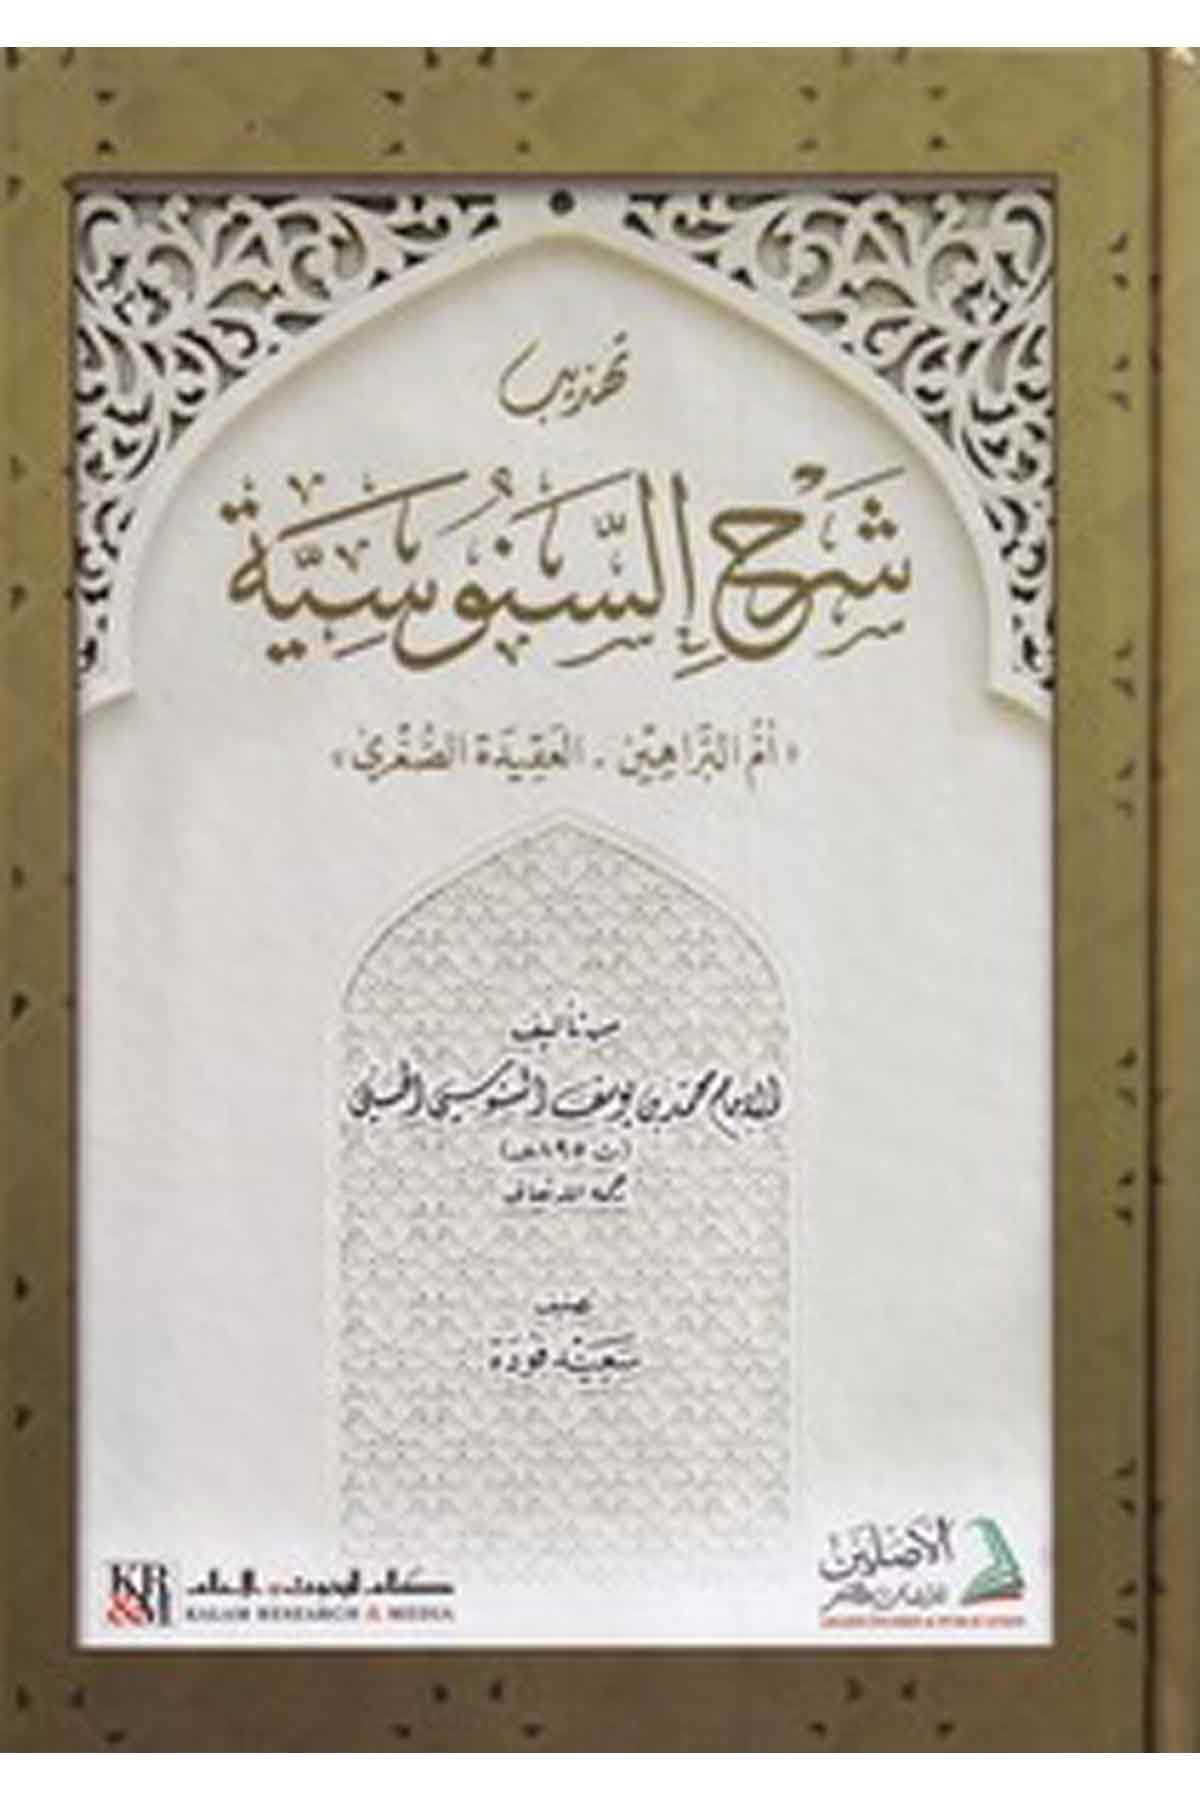 تهذيب
شَرْحُ السَّنُوسِيَّة
«أُمّ البَرَاهِين - العَقِيدَة الصُّغْرَى»
الإمام محمد بن يوسف السنوسي الحسني
(ت ٨٩٥هـ)
رحمه الله تعالى
سَعِيْد فُودَة
الأصلين
KR&M
كلام للبحوث والإعلام
KALAM RESEARCH & MEDIA